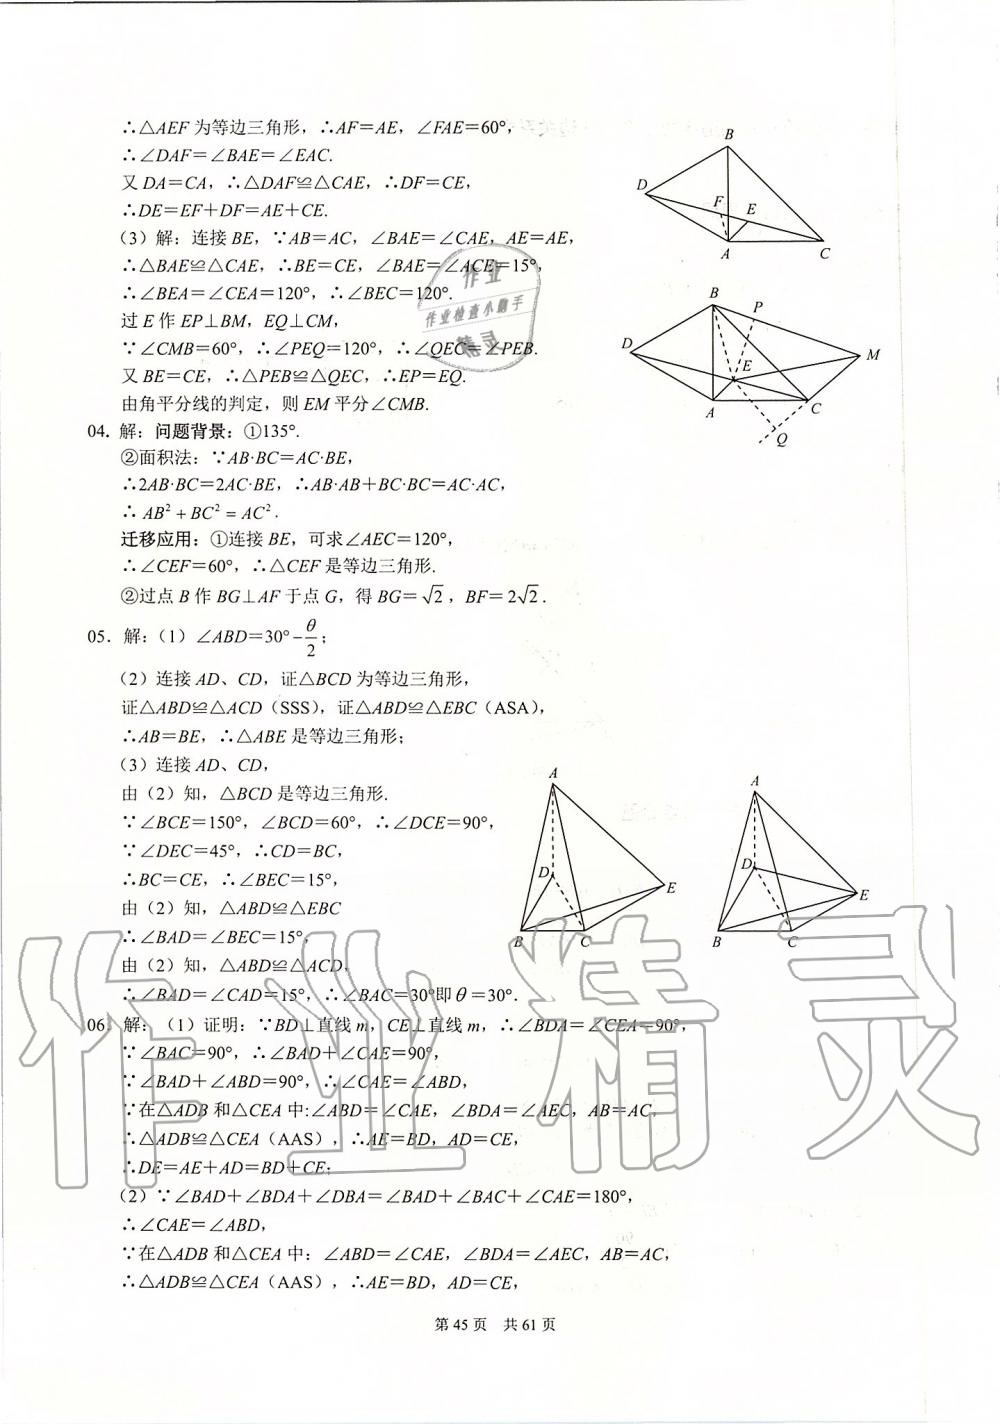 ∴△AEF 为等边三角形，∴AF＝AE，∠FAE＝60°，
∴∠DAF＝∠BAE＝∠EAC.
又 DA＝CA，∴△DAF≌△CAE，∴DF＝CE，
∴DE＝EF＋DF＝AE＋CE.
（3）解：连接 BE，∵AB＝AC，∠BAE＝∠CAE，AE＝AE，
∴△BAE≌△CAE，∴BE＝CE，∠BAE＝∠ACE＝15°，
∴∠BEA＝∠CEA＝120°，∴∠BEC＝120°.
过 E 作 EP⊥BM，EQ⊥CM，
∵∠CMB＝60°，∴∠PEQ＝120°，∴∠QEC＝∠PEB.
又 BE＝CE，∴△PEB≌△QEC，∴EP＝EQ.
由角平分线的判定，则 EM 平分∠CMB.
B
D
F
E
A
C
B
P
D
M
E
A
C
Q
作业
作业检查小助手
精灵
04．解：问题背景：①135°.
②面积法：∵AB·BC＝AC·BE，
∴2AB·BC＝2AC·BE，∴AB·AB＋BC·BC＝AC·AC，
∴ AB²＋BC²＝AC².
迁移应用：①连接 BE，可求∠AEC＝120°，
∴∠CEF＝60°，∴△CEF 是等边三角形.
②过点 B 作 BG⊥AF 于点 G，得 BG＝√2，BF＝2√2．
05．解：（1）∠ABD＝30°－θ/2；
（2）连接 AD、CD，证△BCD 为等边三角形，
证△ABD≌△ACD（SSS），证△ABD≌△EBC（ASA），
∴AB＝BE，∴△ABE 是等边三角形；
（3）连接 AD、CD，
由（2）知，△BCD 是等边三角形.
∵∠BCE＝150°，∠BCD＝60°，∴∠DCE＝90°，
∵∠DEC＝45°，∴CD＝BC，
∴BC＝CE，∴∠BEC＝15°，
由（2）知，△ABD≌△EBC
∴∠BAD＝∠BEC＝15°，
由（2）知，△ABD≌△ACD，
∴∠BAD＝∠CAD＝15°，∴∠BAC＝30°即 θ＝30°．
A
D
E
B
C
A
D
E
B
C
作业精灵
06．解：（1）证明：∵BD⊥直线 m，CE⊥直线 m，∴∠BDA＝∠CEA＝90°，
∵∠BAC＝90°，∴∠BAD＋∠CAE＝90°，
∵∠BAD＋∠ABD＝90°，∴∠CAE＝∠ABD，
∵在△ADB 和△CEA 中:∠ABD＝∠CAE，∠BDA＝∠AEC，AB＝AC，
∴△ADB≌△CEA（AAS），∴AE＝BD，AD＝CE，
∴DE＝AE＋AD＝BD＋CE；
（2）∵∠BAD＋∠BDA＋∠DBA＝∠BAD＋∠BAC＋∠CAE＝180°，
∴∠CAE＝∠ABD，
∵在△ADB 和△CEA 中：∠ABD＝∠CAE，∠BDA＝∠AEC，AB＝AC，
∴△ADB≌△CEA（AAS），∴AE＝BD，AD＝CE，
第 45 页 共 61 页